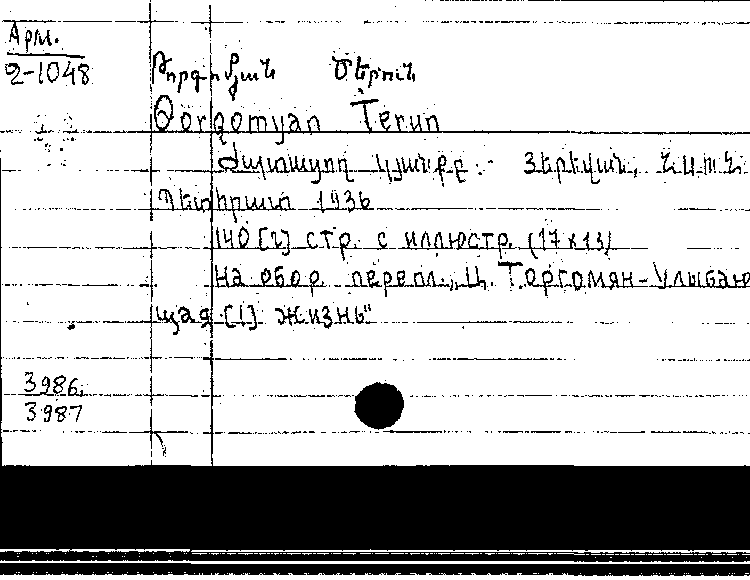 Арм.
2-1048
Թորգոմյան Ծերուն
Qorqomyan Terun
Ժպտացող կյանքը.- Յերեվան,
Պետհրատ 1936
140 [2] стр. с иллюстр. (17×13)
На обор. перепл.: „Ц. Торгомян - Улыбаю
щая [!] жизнь"
3986,
3987